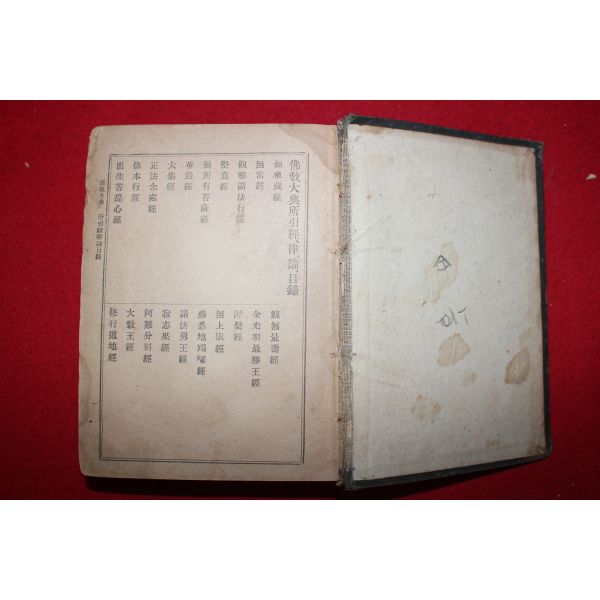 佛敎大典所引經、律、論、目錄
如來藏經
無常經
觀察諸法行經
堅意經
無所有菩薩經
華嚴經
大集經
正法念處經
佛本行經
出生菩提心經
觀無量壽經
金光明最勝王經
涅槃經
無上依經
蘇悉地羯囉經
諸法勇王經
寂志果經
阿難分別經
大敎王經
修行道地經
佛敎大典 所引經律論目錄
一